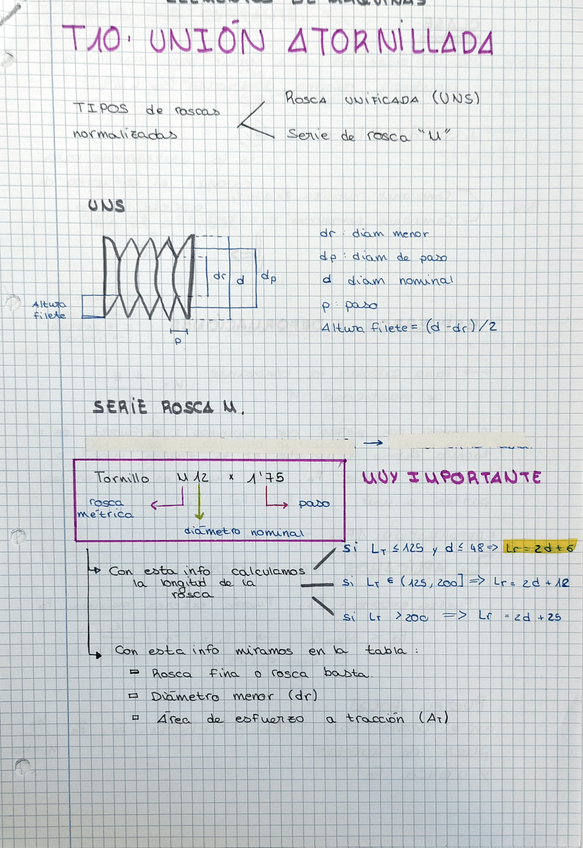 ELEMENTOS DE MÁQUINAS
T10. UNIÓN ATORNILLADA
TIPOS de roscas
normalizadas
ROSCA UNIFICADA (UNS)
Serie de rosca "M"
UNS
dr
d
dp
Altura
filete
p
dr : diam menor
dp : diam de paso
d diam nominal
p : paso
Altura filete = (d - dr)/2
SERIE ROSCA M.
→
Tornillo M 12 x 1'75
rosca
métrica
paso
diámetro nominal
MUY IMPORTANTE
Con esta info calculamos
la longitud de la
rosca
si LT ≤ 125 y d ≤ 48 => Lr = 2d + 6
si LT ∈ (125, 200] => Lr = 2d + 12
si LT > 200 => Lr = 2d + 25
Con esta info miramos en la tabla :
Rosca fina o rosca basta.
Diámetro menor (dr)
Área de esfuerzo a tracción (AT)